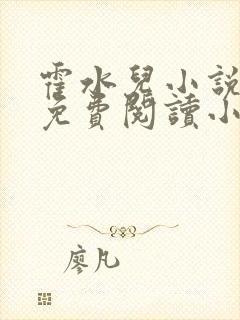 霍水兒小說
免費閱讀小
廖凡